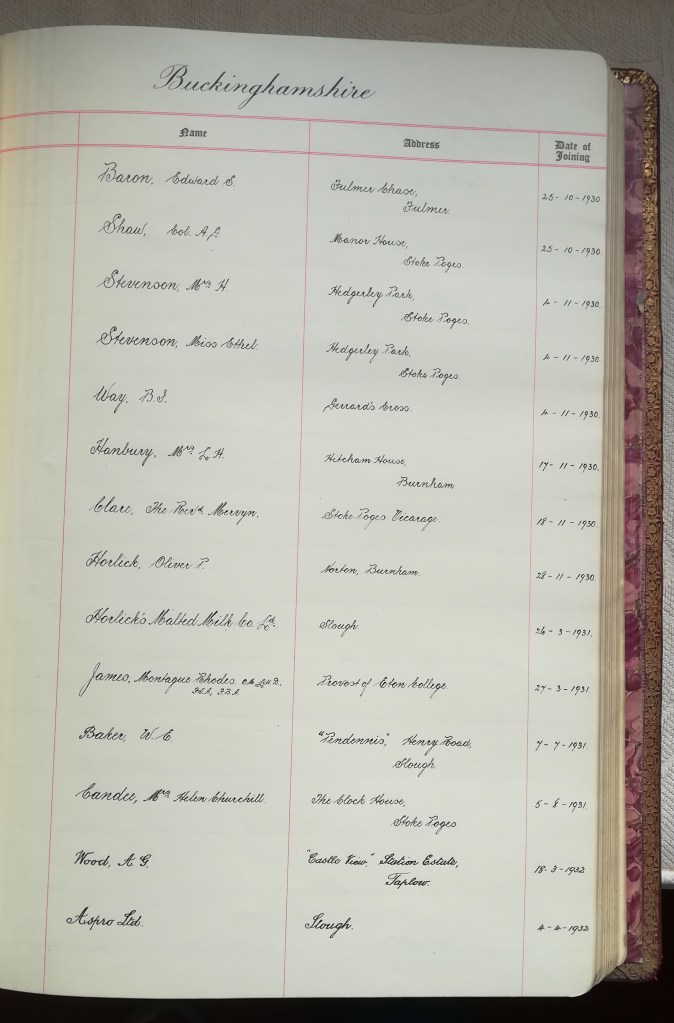 Buckinghamshire
Name Address Date of Joining
Baron, Edward S. Fulmer Chase, 25-10-1930.
Fulmer.
Shaw, Col. A.G. Manor House, 25-10-1930.
Stoke Poges.
Stevenson, Mrs H. Hedgerley Park, 4-11-1930.
Stoke Poges.
Stevenson, Miss Ethel. Hedgerley Park, 4-11-1930.
Stoke Poges.
Way, B.I. Gerrard's Cross. 4-11-1930.
Hanbury, Mrs L.H. Hitcham House, 17-11-1930.
Burnham
Clare, The Revd Mervyn. Stoke Poges Vicarage. 18-11-1930.
Horlick, Oliver P. Norton, Burnham. 28-11-1930.
Horlick's Malted Milk Co. Ld. Slough. 26-3-1931.
James, Montague Rhodes. O.M. Litt.D. Provost of Eton College. 27-3-1931.
F.S.A., F.B.A.
Baker, W.E. "Pendennis", Henry Road, 7-7-1931.
Slough.
Candee, Mrs Helen Churchill. The Clock House, 5-8-1931.
Stoke Poges.
Wood, A.G. "Castle View," Station Estate, 18-3-1932
Taplow.
Aspro Ltd. Slough. 4-4-1932